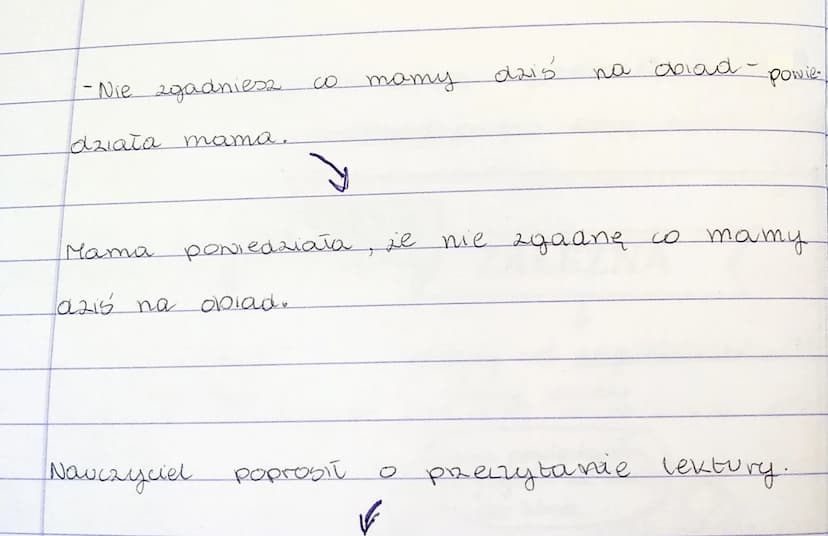 -Nie zgadniesz co mamy dziś na obiad- powie-
działa mama.
Mama powiedziała, że nie zgadnę co mamy
dziś na obiad.
Nauczyciel poprosił o przeczytanie lektury.